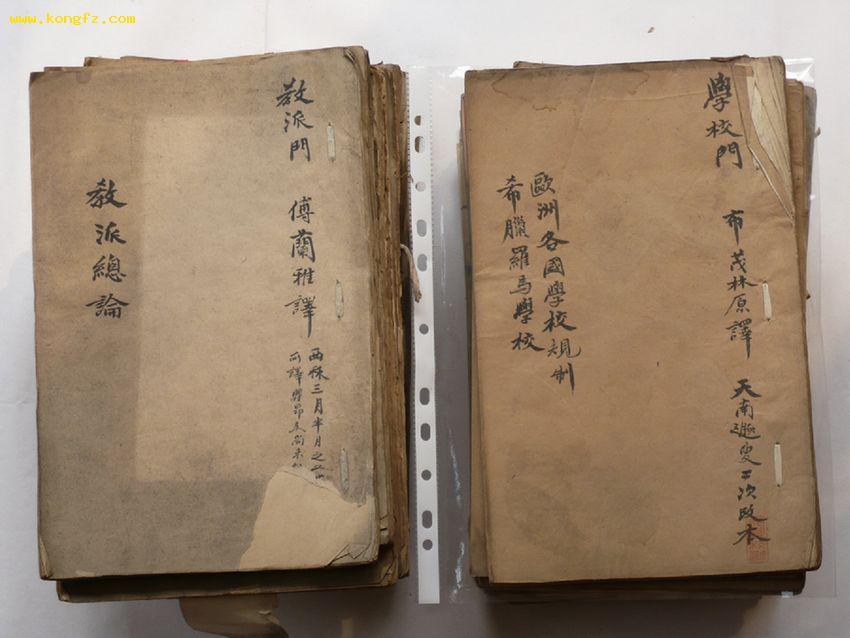 www.kongfz.com
教派門 傅蘭雅譯
西秝三月半月之
所譯
教派總論
學校門 布茂林原譯 天南遯叟二次改本
歐洲各國學校規制
希臘羅馬學校